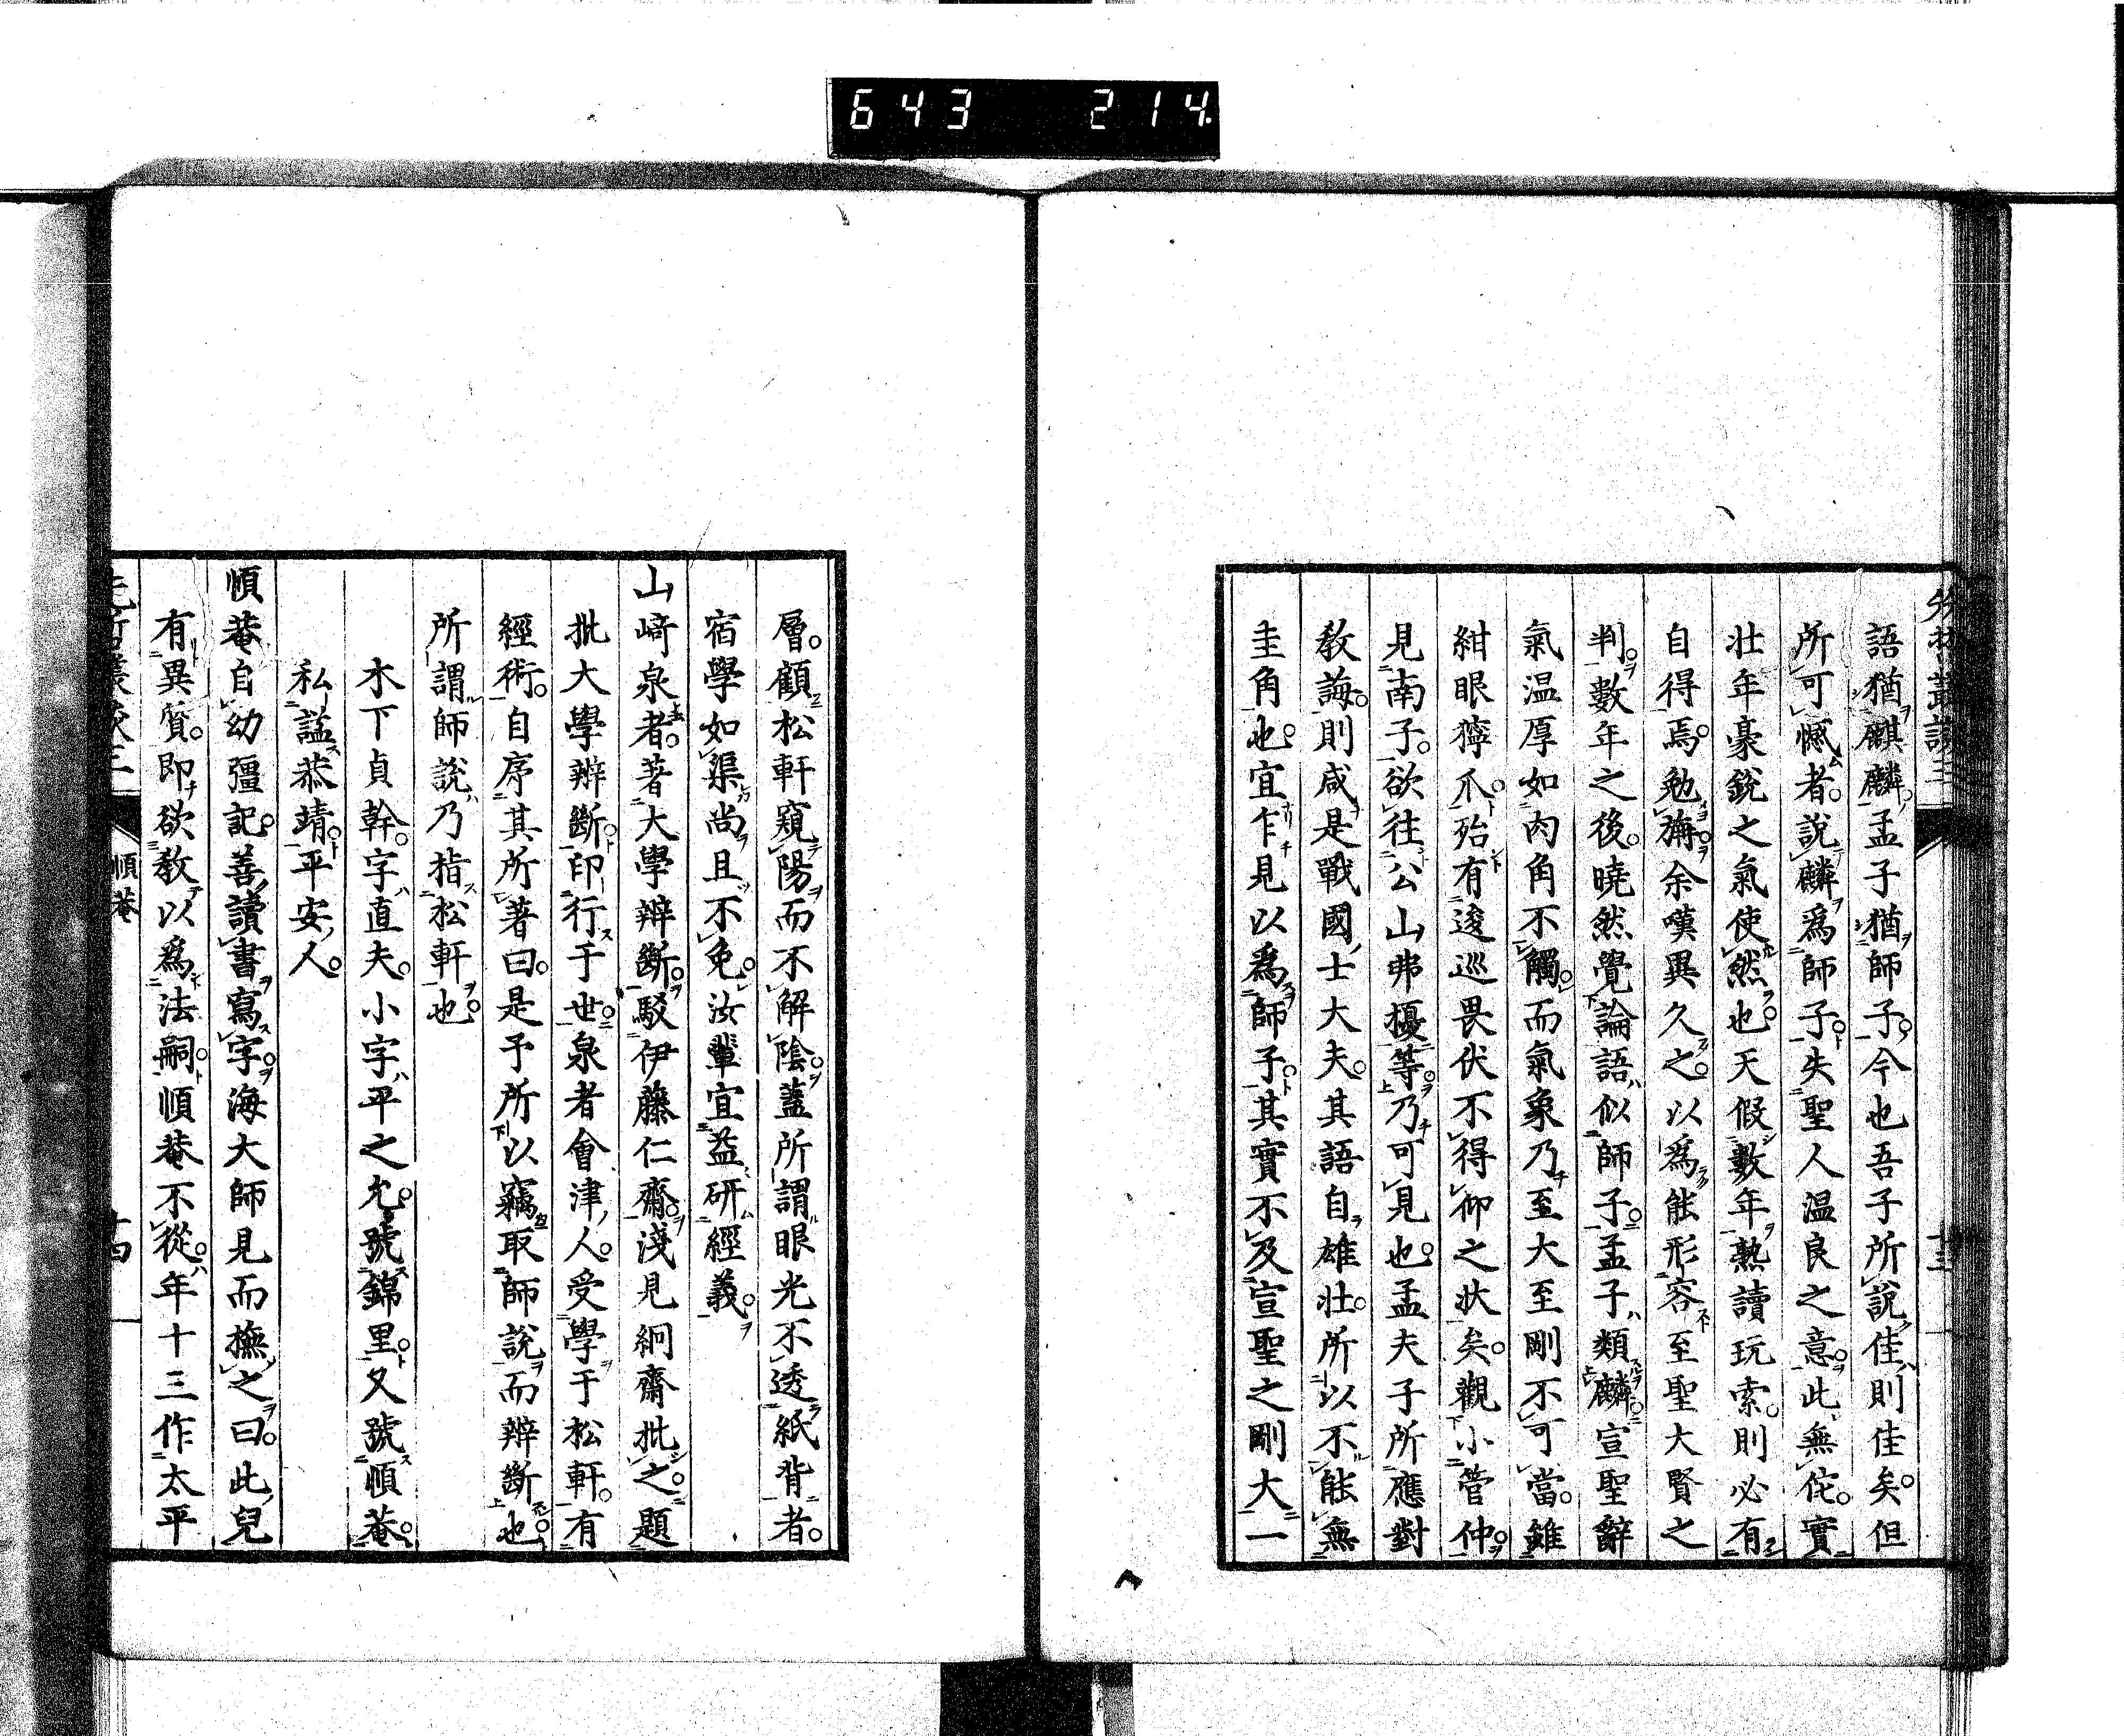 643 214
語猶麒麟孟子猶師子今也吾子所説佳則佳矣但
所可憾者説麟爲師子失聖人温良之意此無佗實
壯年豪鋭之氣使然也天假數年熟讀玩索則必有
自得焉勉旃余嘆異久之以爲能形容至聖大賢之
判數年之後曉然覺論語似師子孟子類麟宣聖辭
氣温厚如肉角不觸而氣象乃至大至剛不可當雖
紺眼獰爪殆有逡巡畏伏不得仰之狀矣觀小管仲
見南子欲往公山弗擾等乃可見也孟夫子所應對
教誨則咸是戰國士大夫其語自雄壯所以不能無
圭角也宜乍見以爲師子其實不及宣聖之剛大一
層顧松軒窺陽而不解陰蓋所謂眼光不透紙背者
宿學如渠尚且不免汝輩宜益研經義
山﨑泉者著大學辨斷駁伊藤仁齋淺見絅齋批之題
批大學辨斷印行于世泉者會津人受學于松軒有
經術自序其所著曰是予所以竊取師説而辨斷也
所謂師説乃指松軒也
木下貞幹字直夫小字平之允號錦里又號順菴
私謚恭靖平安人
順菴自幼彊記善讀書寫字海大師見而撫之曰此兒
有異質即欲教以爲法嗣順菴不從年十三作太平
順菴
十四